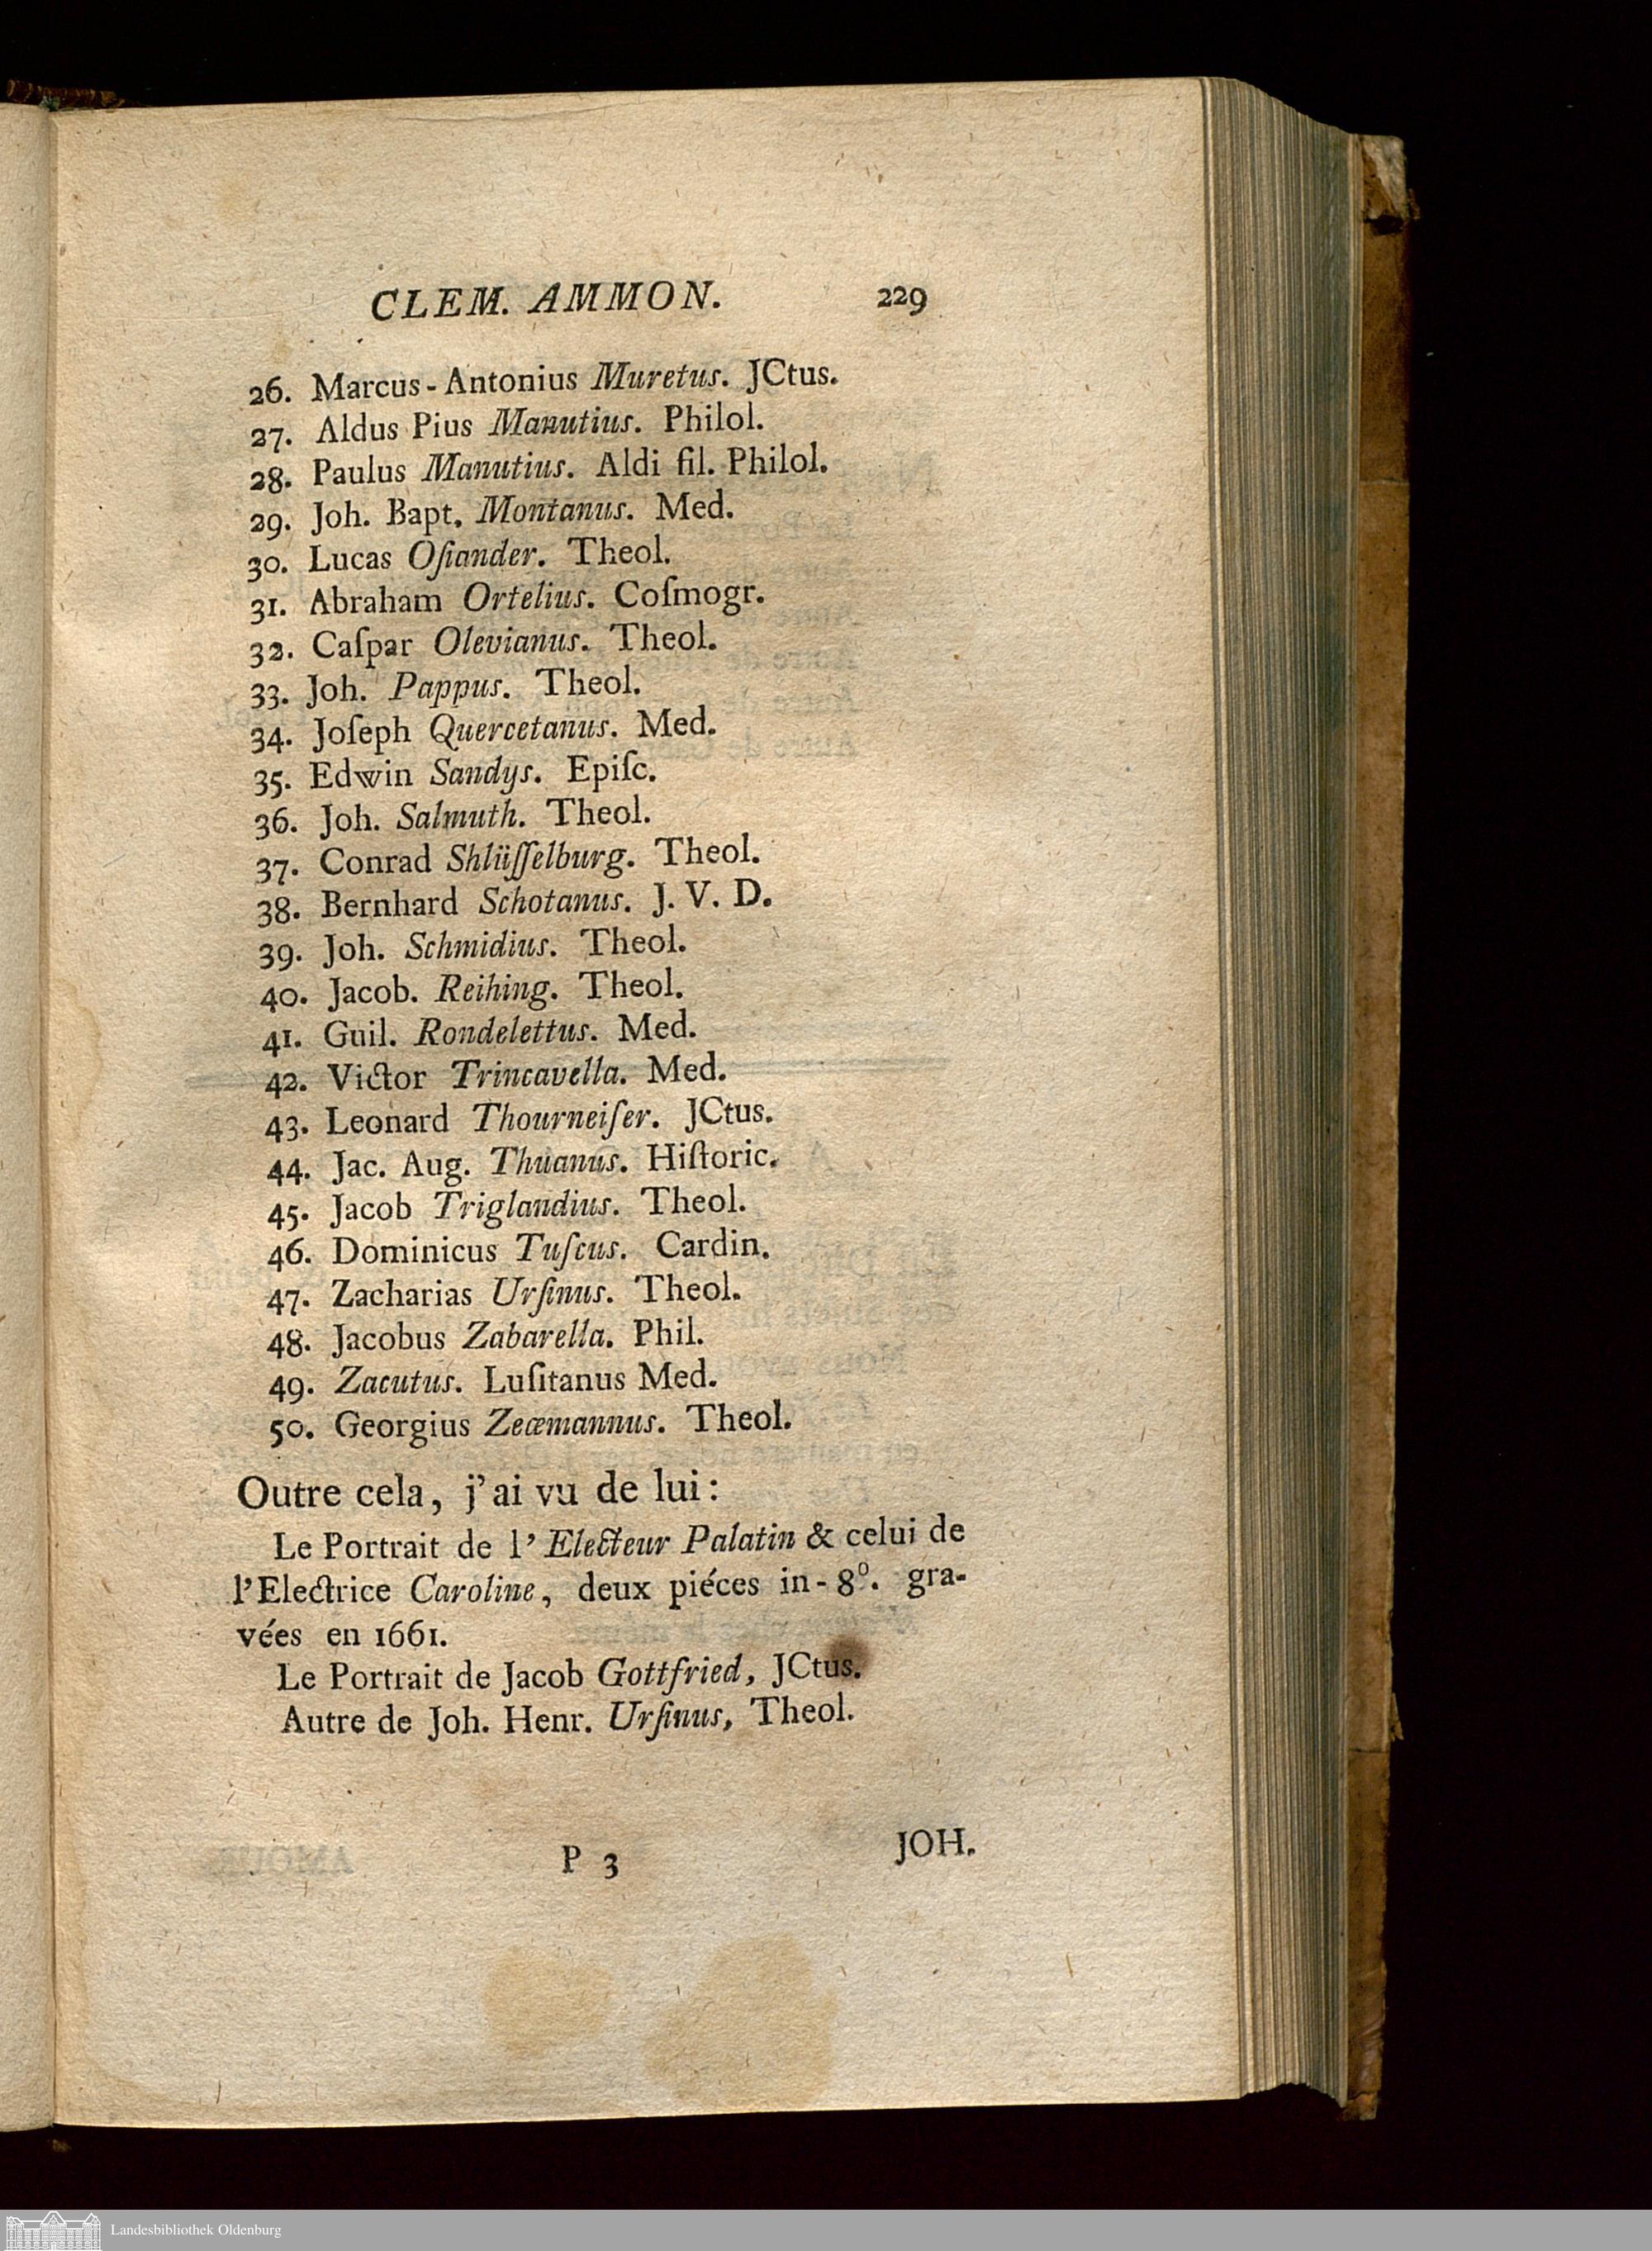 CLEM. AMMON. 229
26. Marcus-Antonius Muretus. JCtus.
27. Aldus Pius Manutius. Philol.
28. Paulus Manutius. Aldi fil. Philol.
29. Joh. Bapt. Montanus. Med.
30. Lucas Oſiander. Theol.
31. Abraham Ortelius. Coſmogr.
32. Caſpar Olevianus. Theol.
33. Joh. Pappus. Theol.
34. Joſeph Quercetanus. Med.
35. Edwin Sandys. Epiſc.
36. Joh. Salmuth. Theol.
37. Conrad Shlüſſelburg. Theol.
38. Bernhard Schotanus. J. V. D.
39. Joh. Schmidius. Theol.
40. Jacob. Reihing. Theol.
41. Guil. Rondelettus. Med.
42. Victor Trincavella. Med.
43. Leonard Thourneiſer. JCtus.
44. Jac. Aug. Thuanus. Hiſtoric.
45. Jacob Triglandius. Theol.
46. Dominicus Tuſcus. Cardin.
47. Zacharias Urſinus. Theol.
48. Jacobus Zabarella. Phil.
49. Zacutus. Luſitanus Med.
50. Georgius Zeæmannus. Theol.
Outre cela, j'ai vu de lui:
Le Portrait de l'Electeur Palatin & celui de
l'Electrice Caroline, deux piéces in-8⁰. gra-
vées en 1661.
Le Portrait de Jacob Gottfried, JCtus.
Autre de Joh. Henr. Urſinus, Theol.
P 3 JOH.
Landesbibliothek Oldenburg